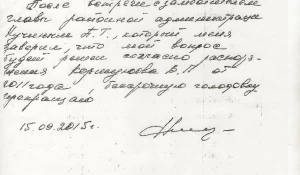 После встречи с заместителем
главы районной администрации
Кучиным А.Т., который меня
заверил, что мой вопрос
будет решен согласно распоря-
жения Коршунова В.П от
2011 года, бессрочную голодовку
прекращаю
15.09.2015г.